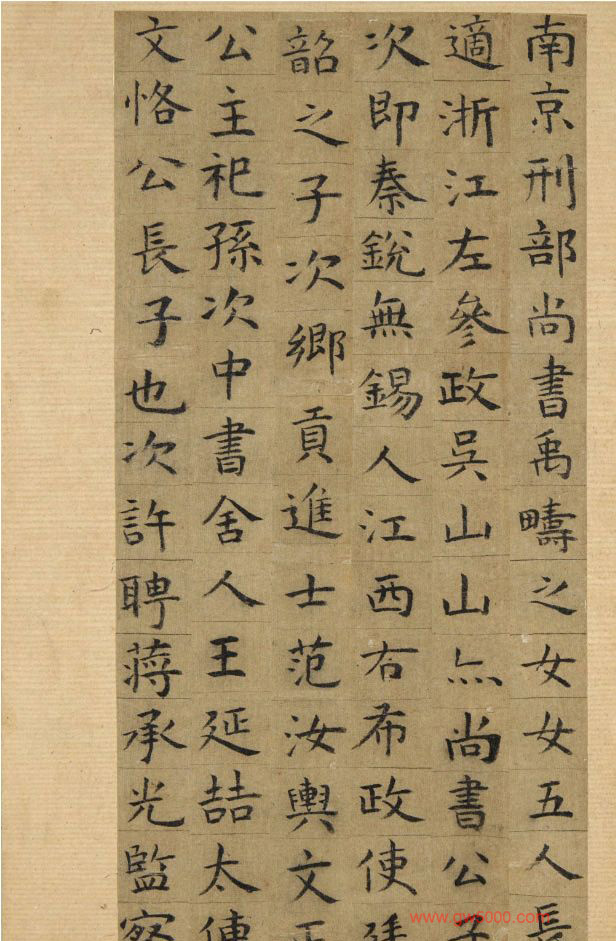 南京刑部尚書禹疇之女女五人長
適浙江左參政吳山山亦尚書公子
次即秦銳無錫人江西右布政使廷
韶之子次鄉貢進士范汝輿文正
公主祀孫次中書舍人王延喆太傅
文恪公長子也次許聘蔣承光監察
www.gw5000.com